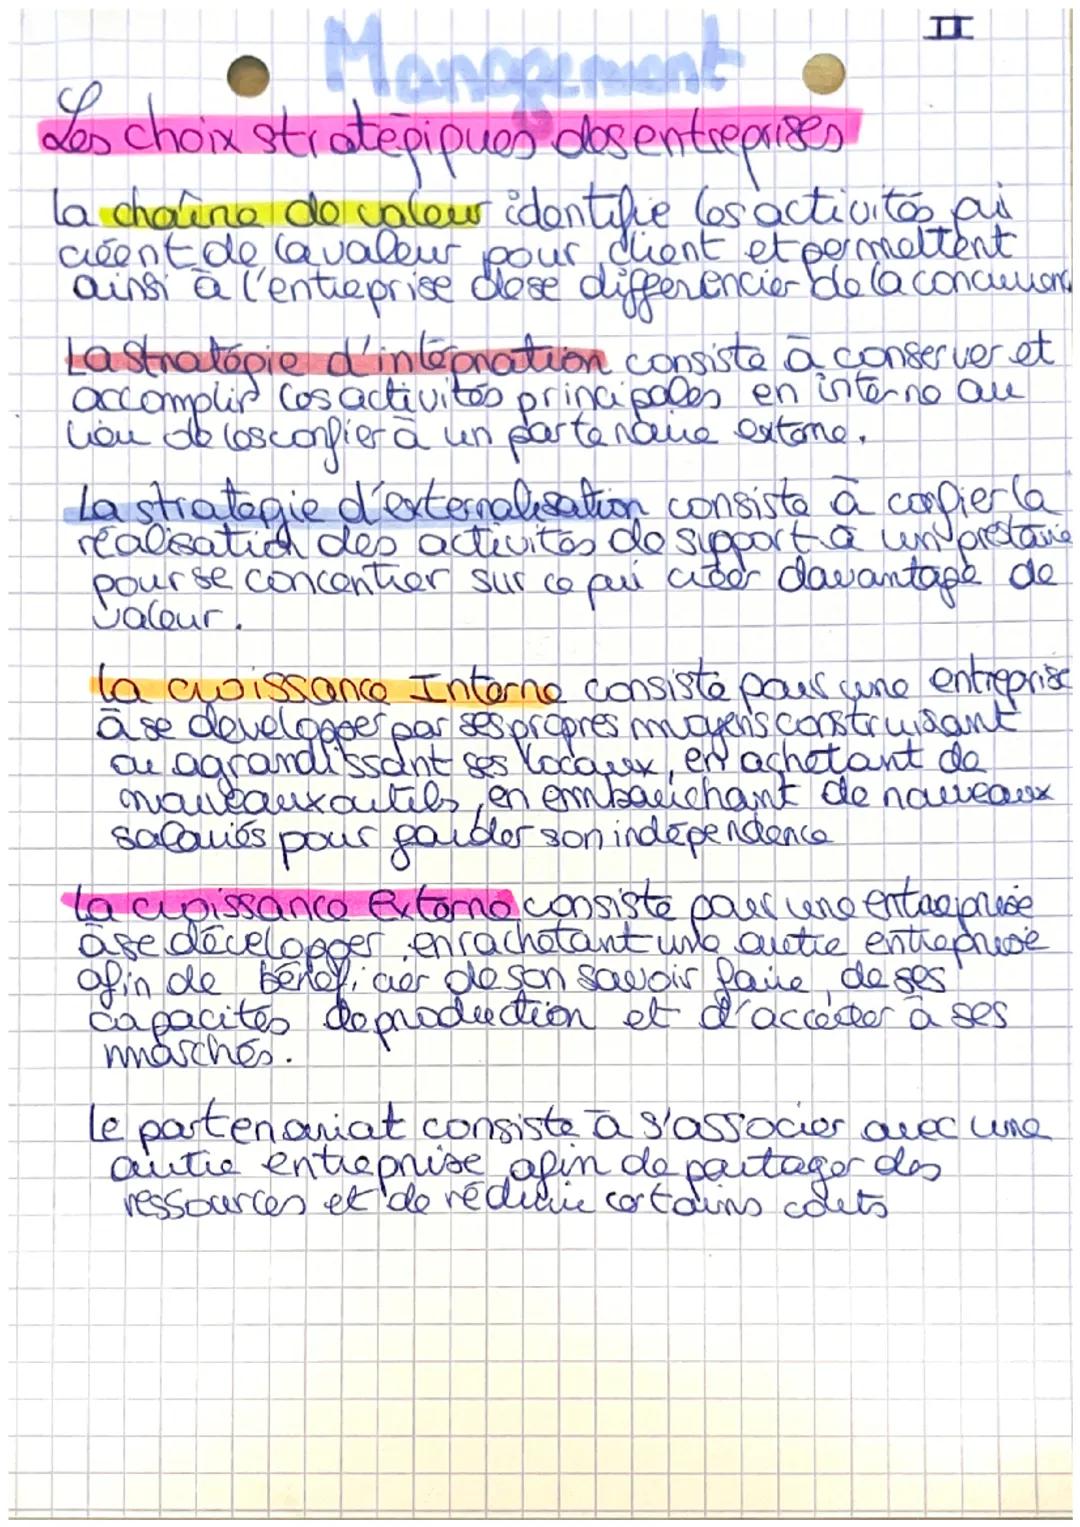 II
Management
Les choix stratégiques des entreprises
La chaîne de valeur identifie les activités qui
créent de la valeur pour client et permettent
ainsi à l'entreprise de se différencier de la concurrence
La stratégie d'intégration consiste à conserver et
accomplir les activités principales en interne au
lieu de les confier à un partenaire externe.
La stratégie d'externalisation consiste à confier la
réalisation des activités de support à un prestaire
pour se concentrer sur ce qui créer davantage de
valeur.
La croissance Interne consiste pour une entreprise
à se developper par ses propres moyens construisant
ou agrandissant ses locaux, en achetant de
nouveaux outils, en embauchant de nouveaux
salariés pour garder son indépendence
La croissance Externe consiste pour une entreprise
à se développer en rachetant une autre entreprise
afin de bénéficier de son savoir faire, de ses
capacités de production et d'accéder à ses
marchés.
Le partenariat consiste à s'associer avec une
autre entreprise afin de partager des
ressources et de réduire certains coûts